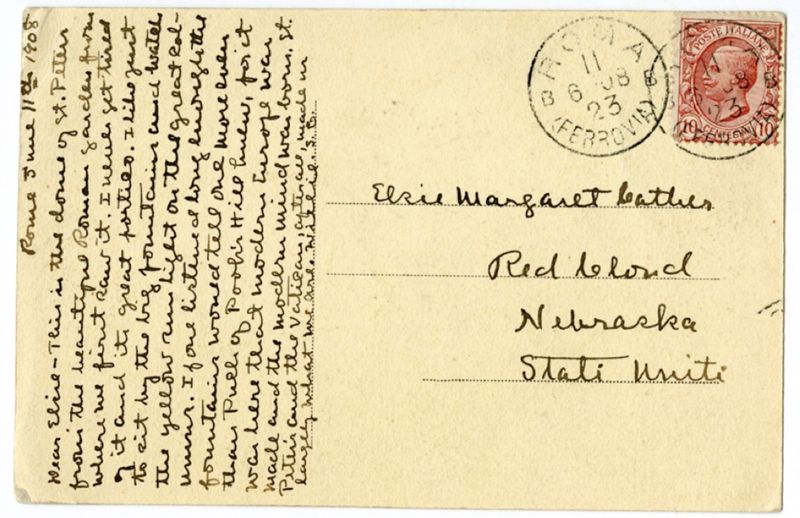 Rome June 11th 1908
Dear Elsie – This is the dome of St. Peters
from the beautiful Roman garden from
where we first saw it. I never get tired
of it and its great porticos. I like just
to sit by the big fountains and watch
the yellow sun light on the great col-
umns. If one listened long enough the
fountains would tell one more even
than Puck of Pook's Hill knew, for it
was here that modern Europe was
made and the modern mind was born. St.
Peters and the Vatican, after all, made us
largely what we are. Willie
ROMA
11
6 08
23
(FERROVIA)
POSTE ITALIANE
10 CENTESIMI 10
Elsie Margaret Cather
Red Cloud
Nebraska
Stati Uniti